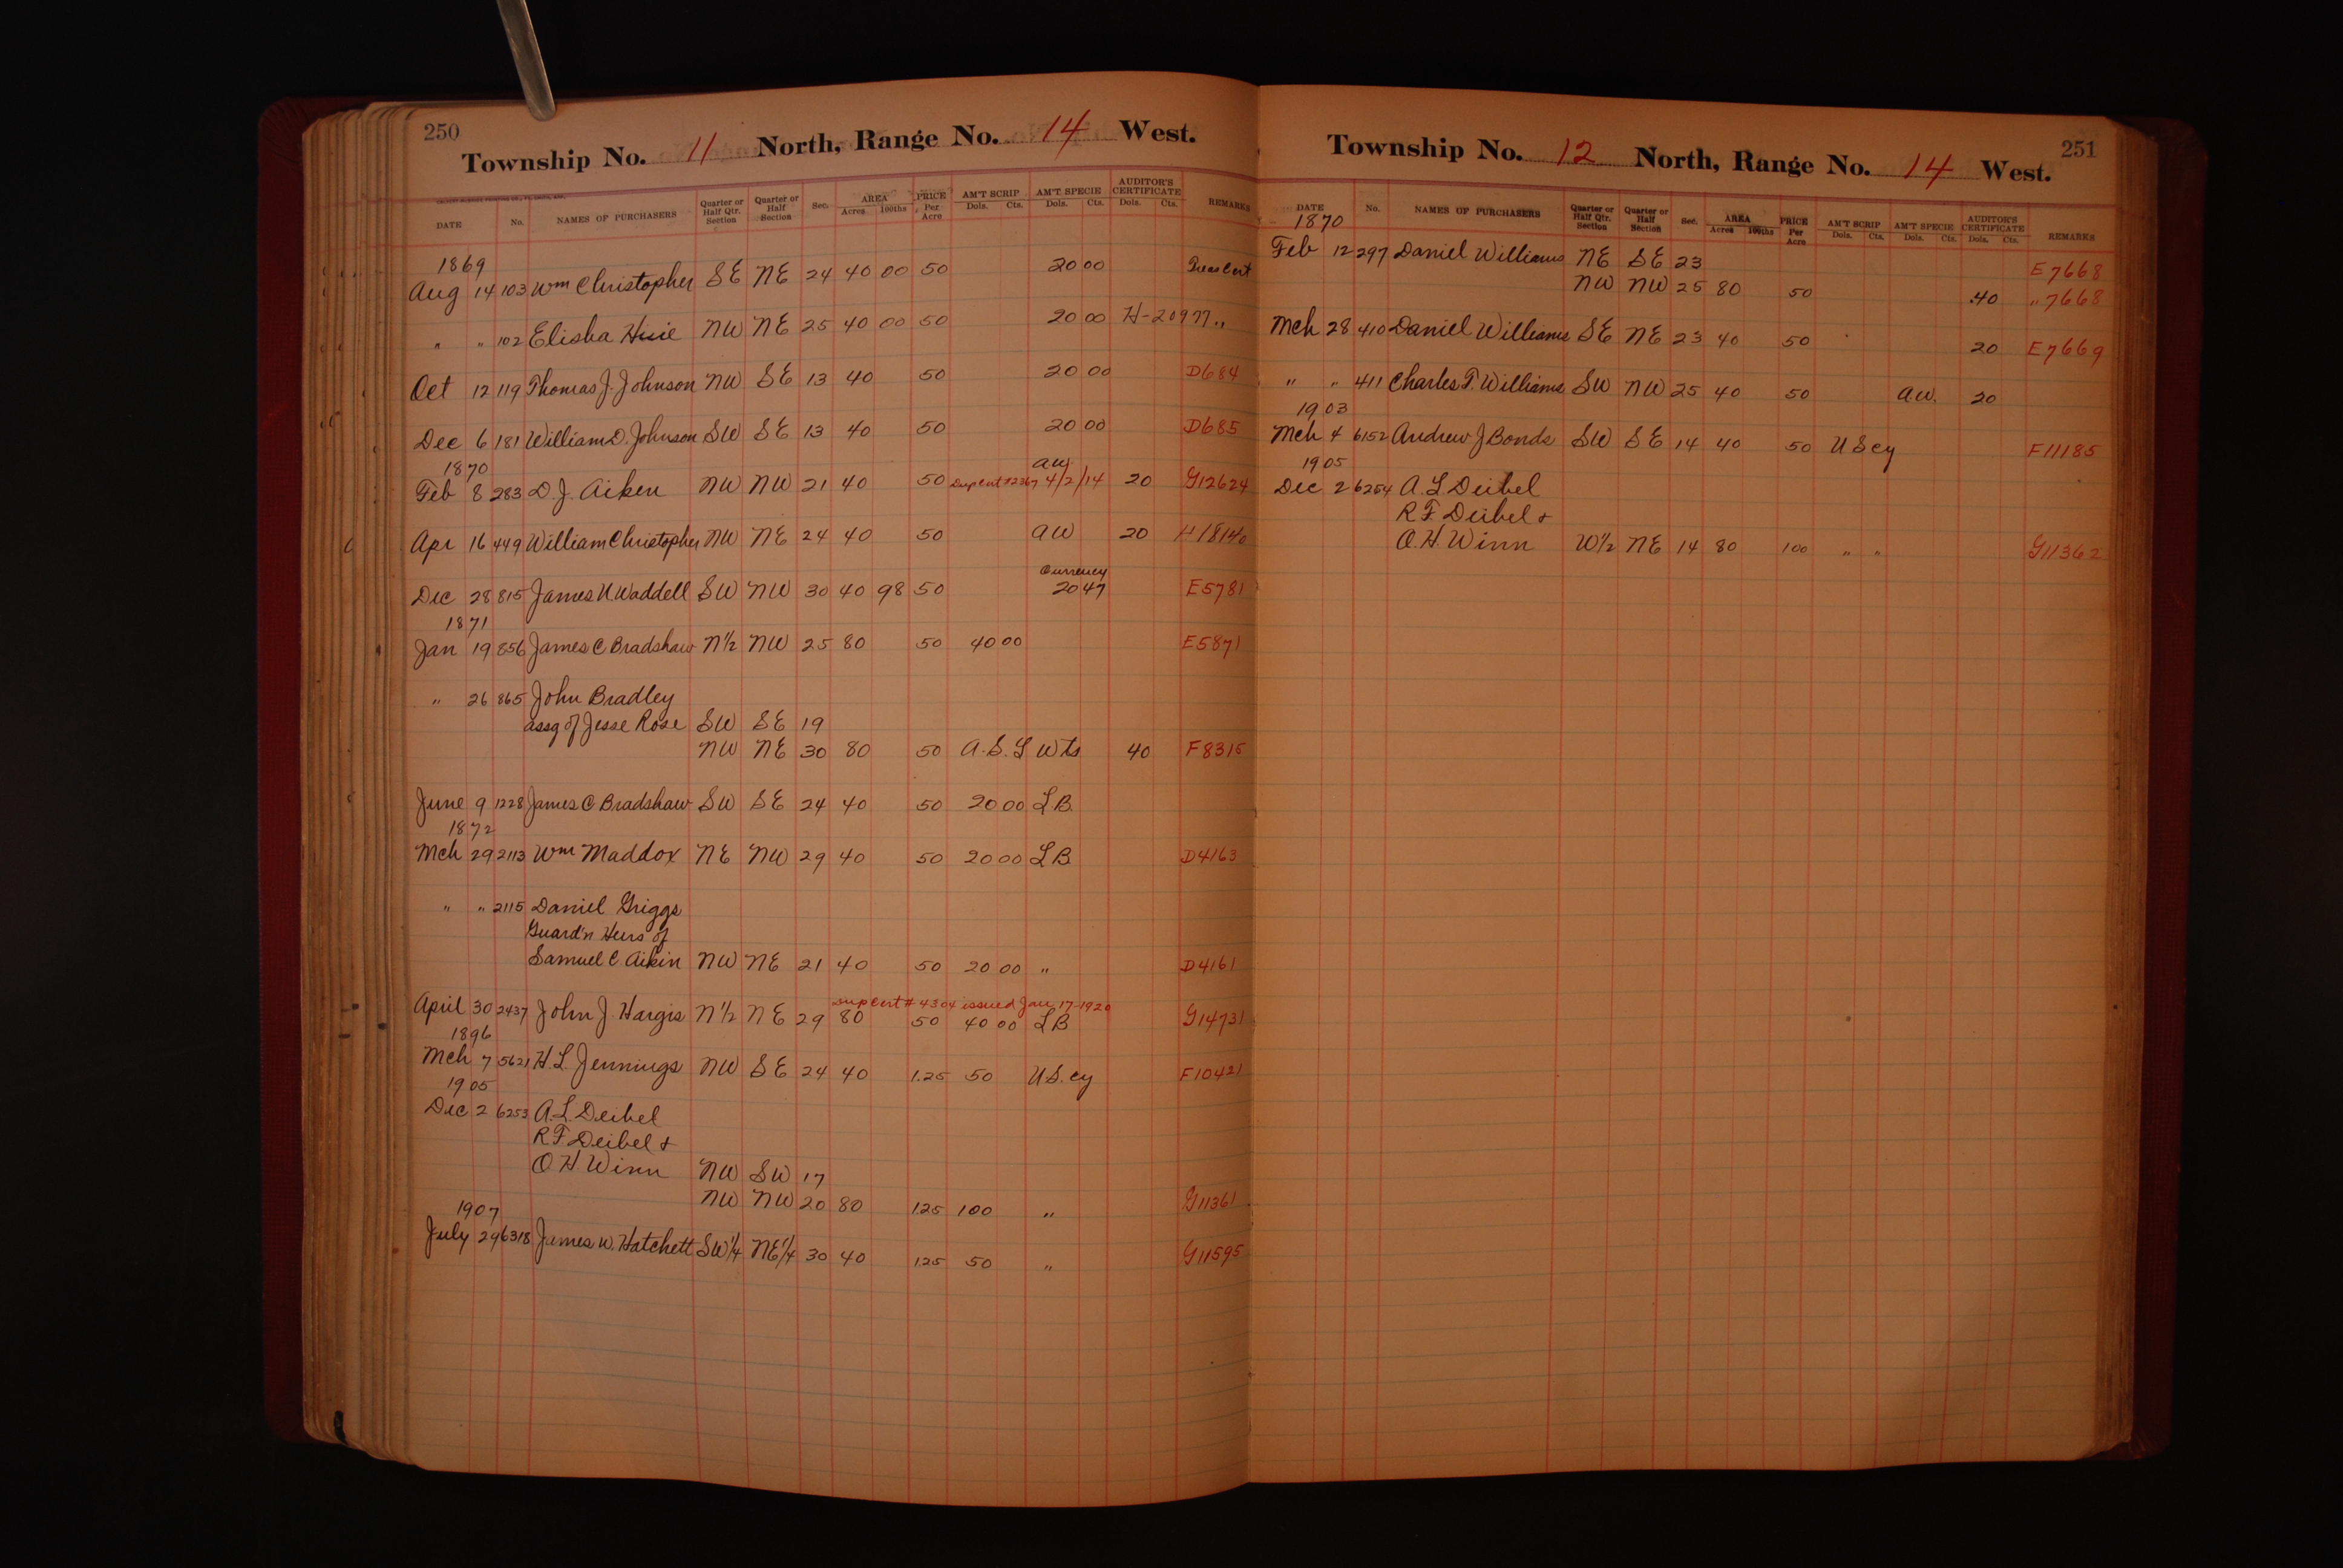 250
Township No. 11 North, Range No. 14 West.
DATE No. NAMES OF PURCHASERS Quarter or Half Qtr. Section Quarter or Half Section Sec. AREA Acres 100ths PRICE Per Acre AM'T SCRIP Dols. Cts. AM'T SPECIE Dols. Cts. AUDITOR'S CERTIFICATE Dols. Cts. REMARKS
1869
Aug 14 103 Wm Christopher SE NE 24 40 00 50 20 00 Treas Cert
" " 102 Elisha Huie NW NE 25 40 00 50 20 00 H-20977 "
Oct 12 119 Thomas J. Johnson NW SE 13 40 50 20 00 D684
Dec 6 181 William D. Johnson SW SE 13 40 50 20 00 D685
1870
Feb 8 283 D. J. Aiken NW NW 21 40 50 Dup Cert #2267 AW 4/2/14 20 G12624
Apr 16 449 William Christopher NW NE 24 40 50 AW 20 H18140
Dec 28 815 James N. Waddell SW NW 30 40 98 50 Currency 20 47 E5781
1871
Jan 19 856 James C Bradshaw N½ NW 25 80 50 40 00 E5871
" 26 865 John Bradley
assg of Jesse Rose SW SE 19
NW NE 30 80 50 A.S.L Wts 40 F8315
June 9 1228 James C Bradshaw SW SE 24 40 50 20 00 LB
1872
Mch 29 2113 Wm Maddox NE NW 29 40 50 20 00 LB D4163
" " 2115 Daniel Griggs
Guard'n Heirs of
Samuel C. Aikin NW NE 21 40 50 20 00 " D4161
Dup Cert # 4304 issued Jan 17-1920
April 30 2437 John J. Hargis N½ NE 29 80 50 40 00 LB G14731
1896
Mch 7 5621 H. L. Jennings NW SE 24 40 1.25 50 U.S. cy F10421
1905
Dec 2 6253 A. L. Deibel
R F. Deibel &
O. H. Winn NW SW 17
NW NW 20 80 1.25 100 " G11361
1907
July 29 6318 James W. Hatchett SW¼ NE¼ 30 40 1.25 50 " G11595
251
Township No. 12 North, Range No. 14 West.
DATE No. NAMES OF PURCHASERS Quarter or Half Qtr. Section Quarter or Half Section Sec. AREA Acres 100ths PRICE Per Acre AM'T SCRIP Dols. Cts. AM'T SPECIE Dols. Cts. AUDITOR'S CERTIFICATE Dols. Cts. REMARKS
1870
Feb 12 297 Daniel Williams NE SE 23 E7668
NW NW 25 80 50 40 " 7668
Mch 28 410 Daniel Williams SE NE 23 40 50 20 E7669
" " 411 Charles T. Williams SW NW 25 40 50 AW. 20
1903
Mch 4 6152 Andrew J Bonds SW SE 14 40 50 U S cy F11185
1905
Dec 2 6254 A. L Deibel
R F. Deibel &
O. H. Winn W½ NE 14 80 100 " " G11362